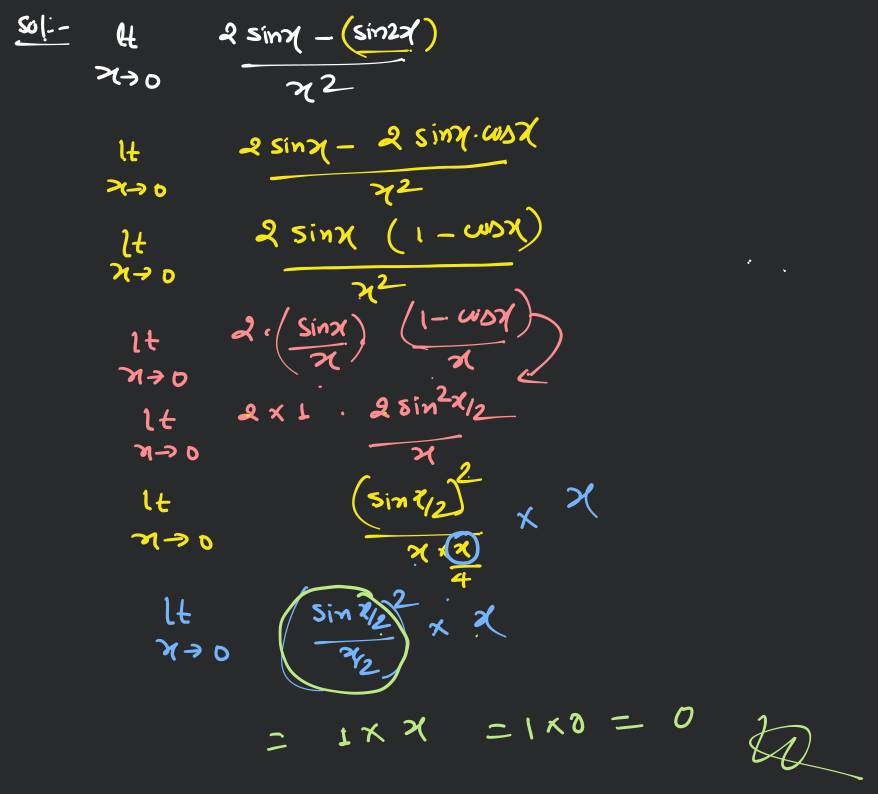 Sol:- lt x→0 2 sinx − (sin2x) / x²
lt x→0 2 sinx − 2 sinx·cosx / x²
lt x→0 2 sinx (1 − cosx) / x²
lt x→0 2·(sinx / x) (1 − cosx / x)
lt x→0 2 × 1 · 2 sin² x/2 / x
lt x→0 (sin x/2)² / x · x/4 × x
lt x→0 (sin x/2 / x/2)² × x
= 1 × x = 1 × 0 = 0